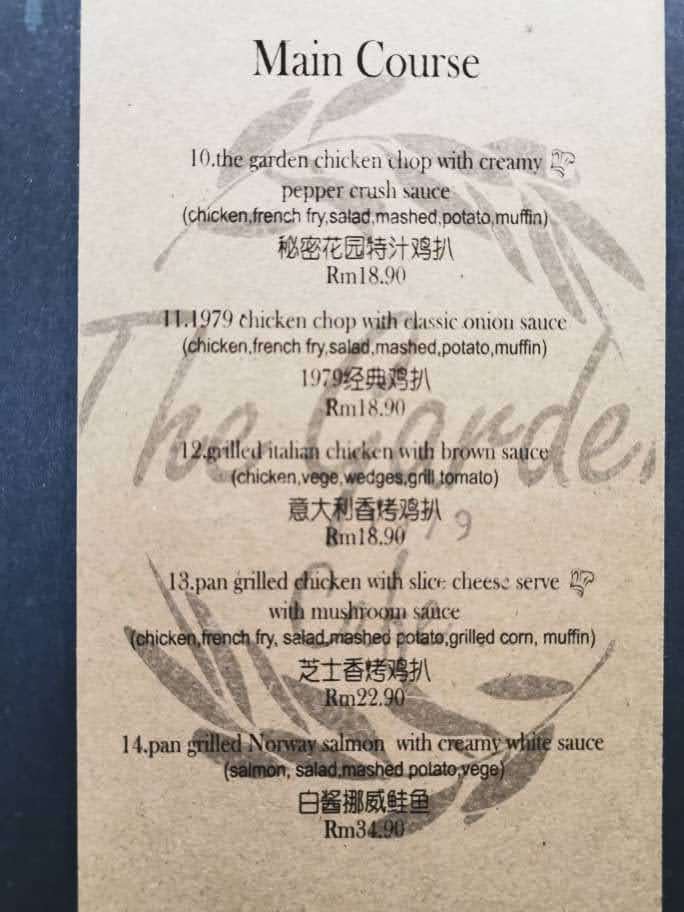 Main Course
10.the garden chicken chop with creamy
pepper crush sauce
(chicken,french fry,salad,mashed,potato,muffin)
秘密花园特汁鸡扒
Rm18.90
11.1979 chicken chop with classic onion sauce
(chicken,french fry,salad,mashed,potato,muffin)
1979经典鸡扒
Rm18.90
12.grilled italian chicken with brown sauce
(chicken,vege,wedges,grill tomato)
意大利香烤鸡扒
Rm18.90
13.pan grilled chicken with slice cheese serve
with mushroom sauce
(chicken,french fry, salad,mashed potato,grilled corn, muffin)
芝士香烤鸡扒
Rm22.90
14.pan grilled Norway salmon with creamy white sauce
(salmon, salad,mashed potato,vege)
白酱挪威鲑鱼
Rm34.90
The Garden